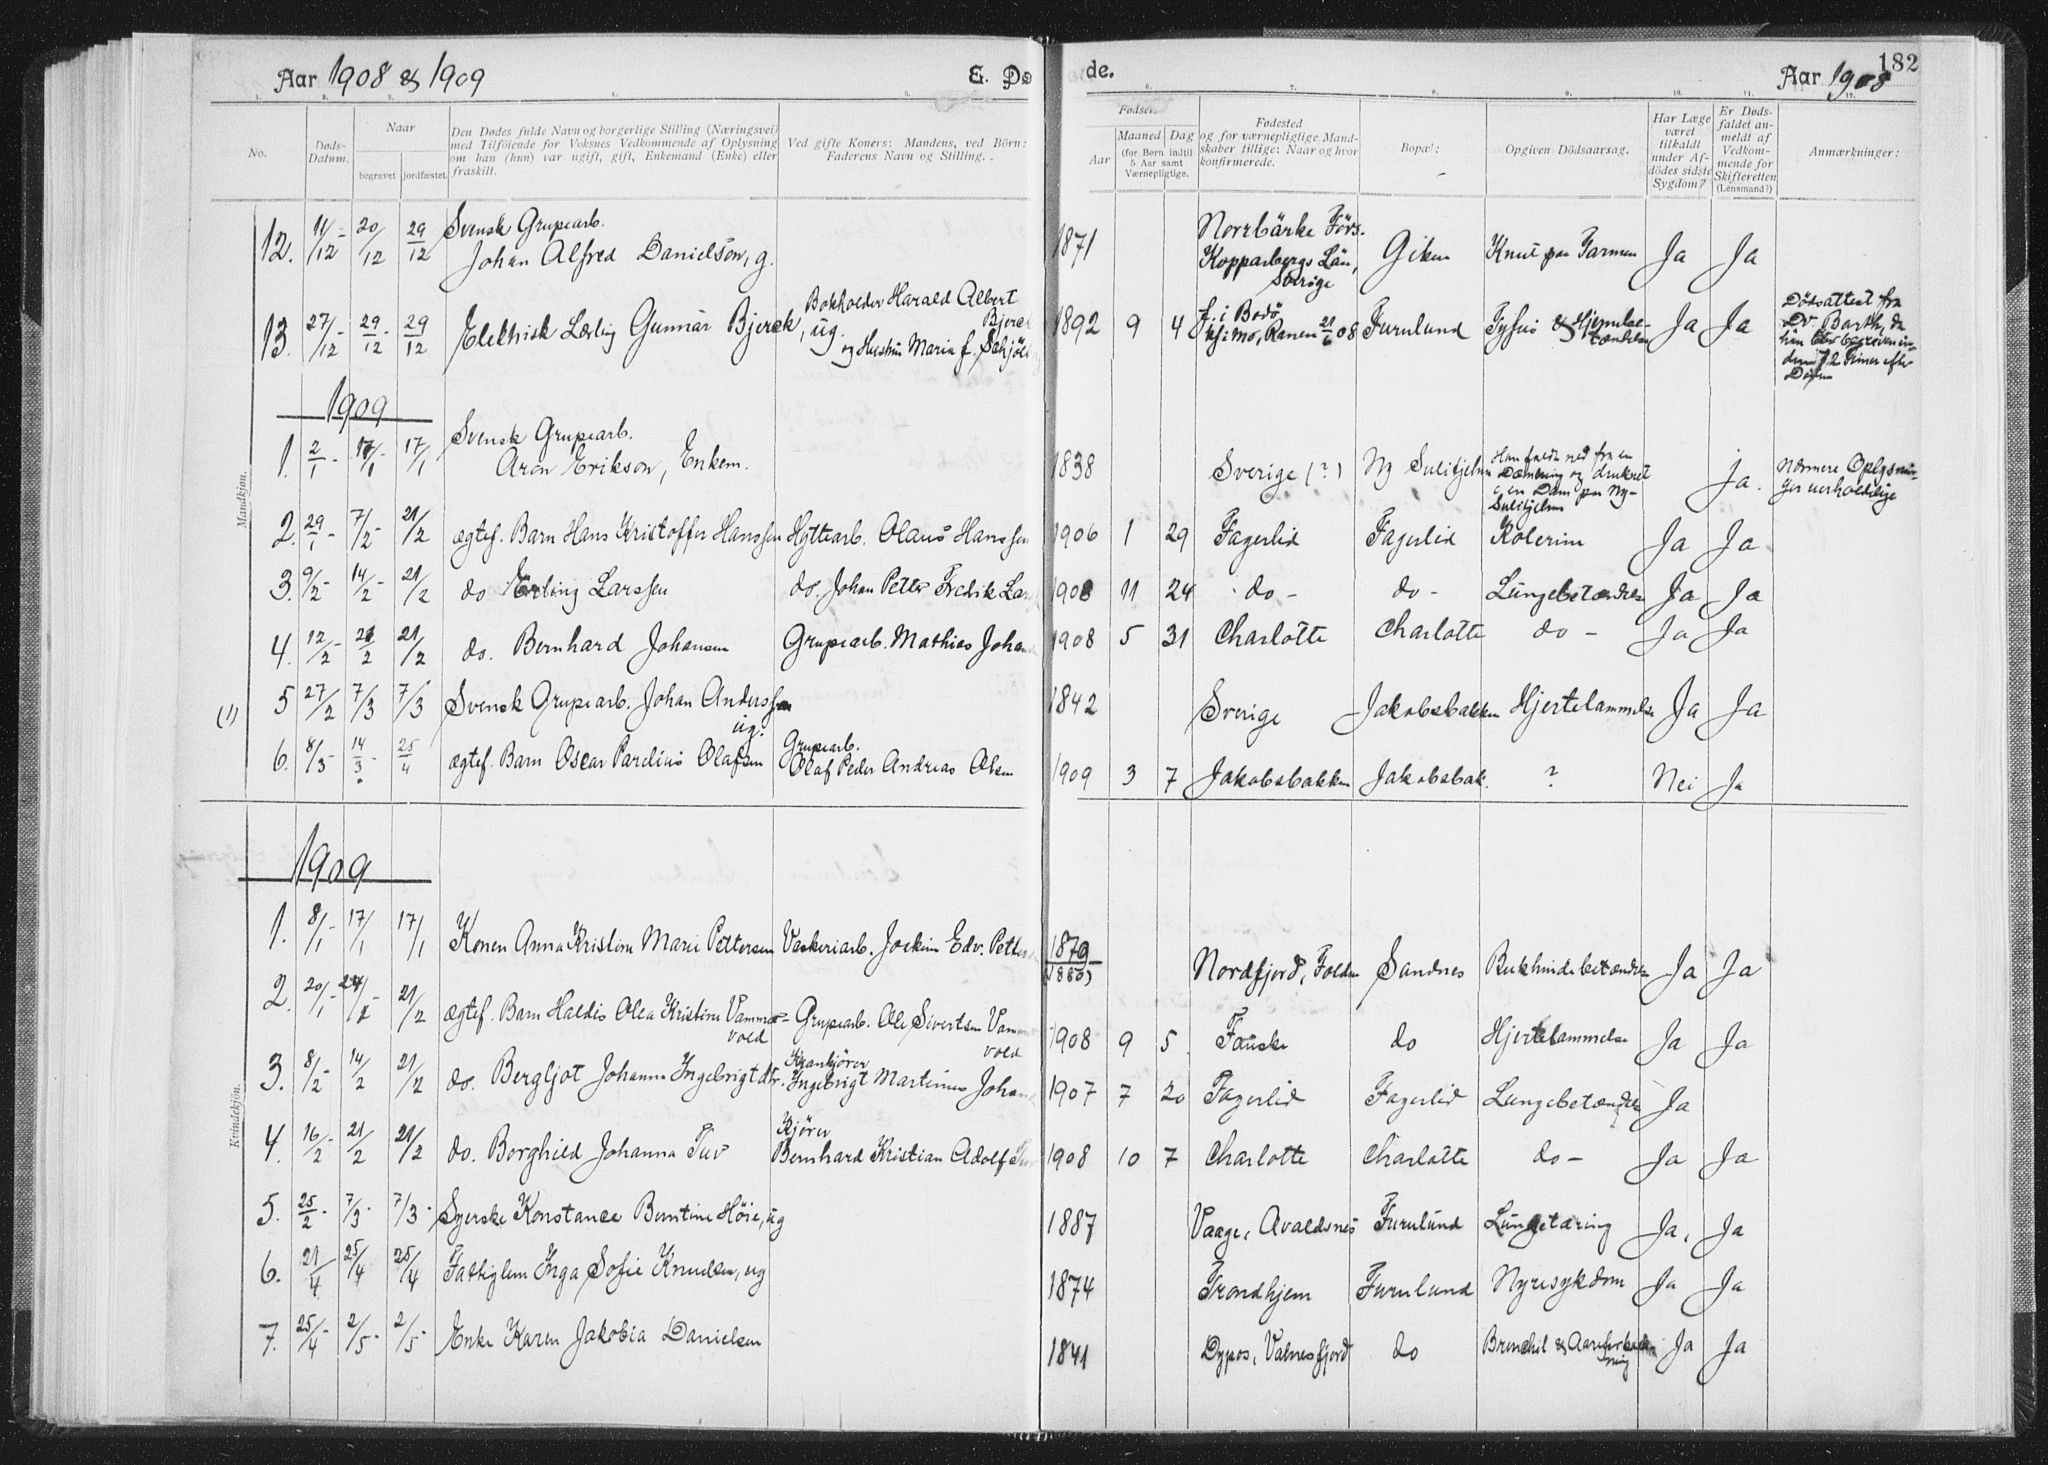 Aar 1908 & 1909
E. Dø
de.
Aar 1908
182
No.
Døds-Datum.
Naar
begravet
jordfæstet.
Den Dødes fulde Navn og borgerlige Stilling (Næringsvei)
med Tilföiende for Voksnes Vedkommende af Oplysning
om han (hun) var ugift, gift, Enkemand (Enke) eller
fraskilt.
Ved gifte Koners: Mandens, ved Börn:
Faderens Navn og Stilling.
Aar
Maaned
Dag
(for Børn indtil
5 Aar samt
Værnepligtige.
Fødested
og for værnepligtige Mand-
skaber tillige: Naar og hvor
konfirmerede.
Bopæl:
Opgiven Dödsaarsag.
Har Læge
været
tilkaldt
under Af-
dödes sidste
Sygdom?
Er Døds-
faldet an-
meldt af
Vedkom-
mende for
Skifteretten
(Lensmand?)
Anmærkninger:
Mandkjøn.
12. 11/12 - 20/12 29/12 Svensk Grupearb.
Johan Alfred Danielson, g.
1871 Norrbärke Förs.
Kopparbergs Län,
Sverige
Giken Knust paa Tarmen Ja Ja
13. 27/12 - 29/12 - 29/12 Elektrisk Lærling Gunnar Bjerck, ug.
Bokholder Harald Albert
Bjerck
og Hustru Maria f. Schjöl
1892 9 4 f. i Bodö
kf. i Mo, Ranen 21/6 08 Furulund Tyfus & Hjernebe-
tændelse Ja Ja
Dödsattest fra
Dr. Barth, da
han blev begraven in-
den 72 Timer efter
Döden
1909
1. 2/1 - 17/1 - 17/1 Svensk Grupearb.
Aron Erikson, Enkem.
1838 Sverige (?) Ny Sulitjelma Han faldt ned fra en
Dæmning og druknet
i en Dam paa Ny-
Sulitjelma
Ja. Nærmere Oplysnin-
ger uerholdelige
2. 29/1 - 7/2 - 21/2 ægtef. Barn Hans Kristoffer Hanssen Hyttearb. Olaus Hanssen 1906 1 29 Fagerlid Fagerlid Kolerine Ja Ja
3. 9/2 - 14/2 - 21/2 do Erling Larssen do. Johan Petter Fredrik La 1908 11 24 do - do - Lungebetændelse Ja Ja
4. 12/2 - 21/2 21/2 do. Bernhard Johansen Grupearb. Mathias Joha 1908 5 31 Charlotte Charlotte do - Ja Ja
(1) 5 27/2 7/3 7/3 Svensk Grupearb. Johan Anderssen
ug.
1842 Sverige Jakobsbakken Hjertelammelse Ja Ja
6. 8/3 - 14/3 - 25/4 ægtef. Barn Oscar Parelius Olafsen Grupearb.
Olaf Peder Andreas Olsen 1909 3 7 Jakobsbakken Jakobsbak. ? Nei Ja
1909
Kvindekjön.
1. 8/1 - 17/1 17/1 Konen Anna Kristine Marie Pettersen Vaskeriarb. Jockim Edv. Petters 1879
(1880) Nordfjord, Folden Sandnes Bukhindebetændelse Ja Ja
2. 20/1 - 24/1 - 21/2 ægtef. Barn Haldis Olea Kristine Vamma-
vold Grupearb. Ole Sivertsen Vam
vold 1908 9 5 Fauske do Hjertelammelse Ja Ja
3. 8/2 - 14/2 21/2 do. Bergljot Johanna Ingebrigtdtr. Krankjörer
Ingebrigt Martinus Joha 1907 7 20 Fagerlid Fagerlid Lungebetændelse Ja
4. 16/2 - 21/2 21/2 do. Borghild Johanna Tuv Kjörer
Bernhard Kristian Adolf Tuv 1908 10 7 Charlotte Charlotte do - Ja Ja
5. 25/2 - 7/3 - 7/3 - Syerske Konstance Berntine Höie, ug 1887 Vaage, Avaldsnes Furulund Lungetæring Ja, Ja
6. 21/4 25/4 25/4 Fattiglem Inga Sofie Knudsen, ug 1874 Trondhjem Furulund Nyresykdom Ja Ja
7. 25/4 - 2/5 - 2/5 - Enke Karen Jakobia Danielsen 1841 Dypos, Valnesfjord do Bronchit & Ja Ja